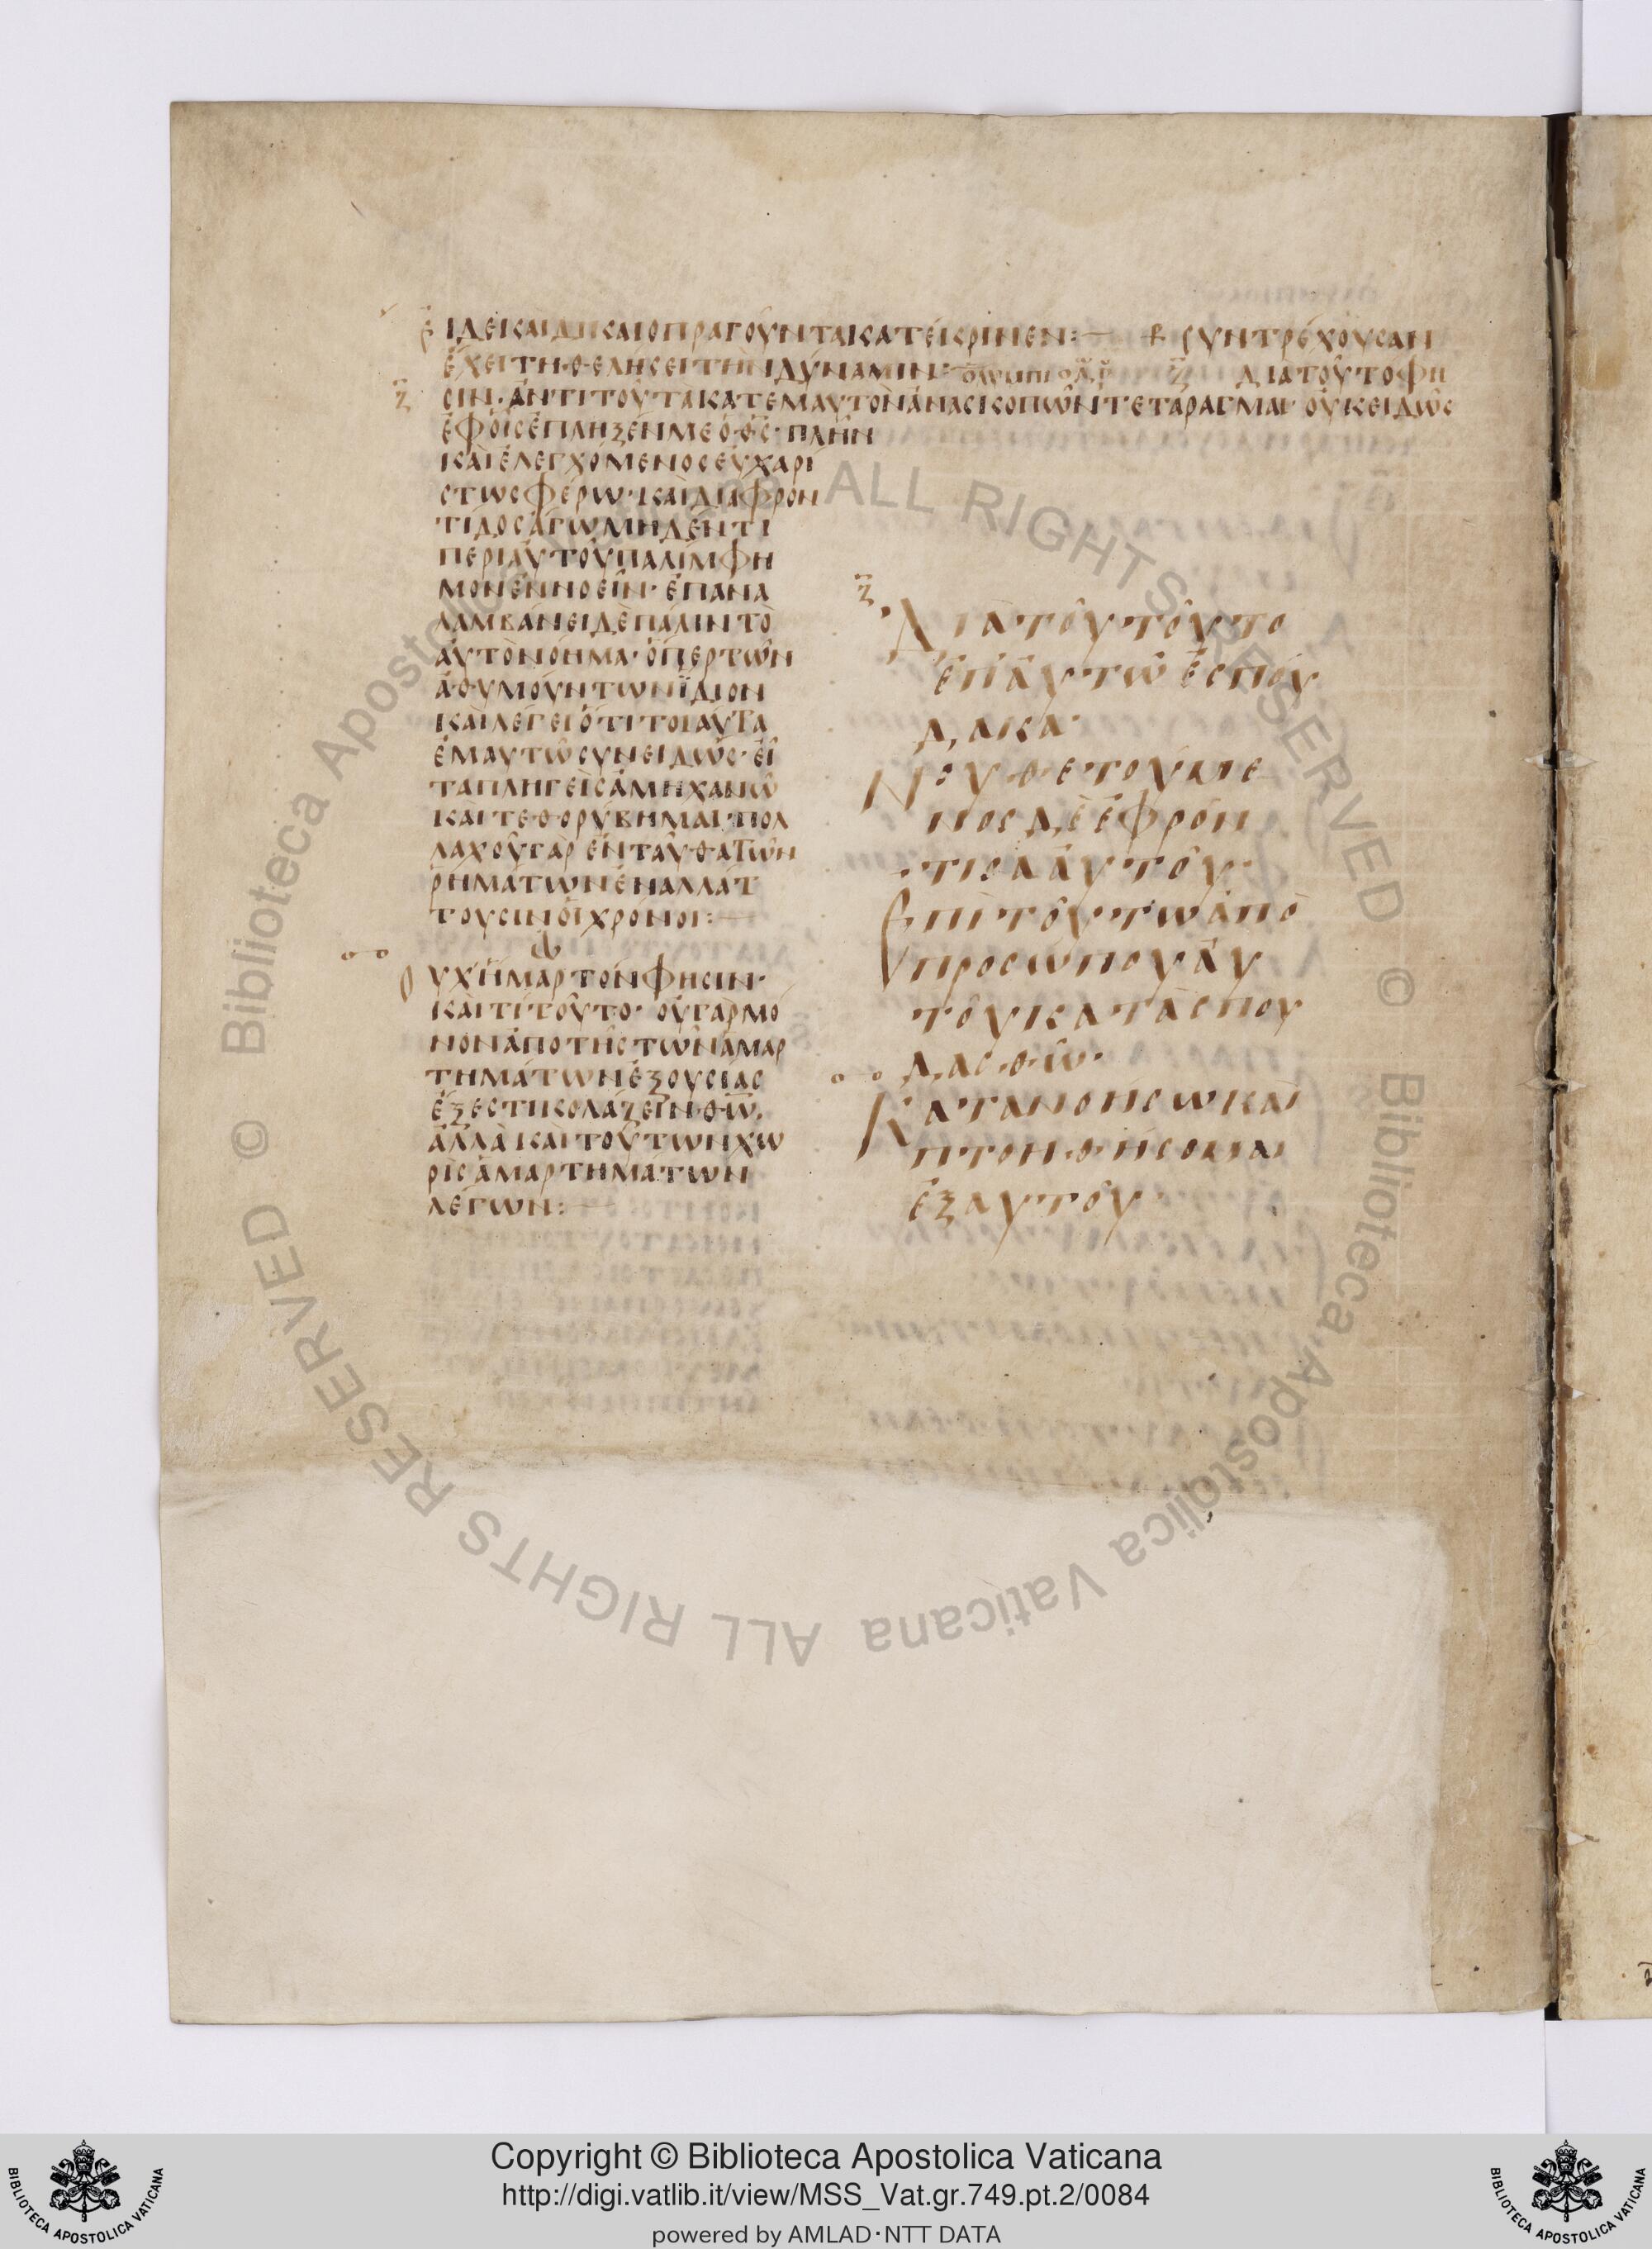 ΕΙΔΕΚΑΙΔΙΚΑΙΟΠΡΑΓΟΥΝΤΑΚΑΤΕΚΡΙΝΕΝ:— ΣΥΝΤΡΕΧΟΥΣΑΝ
ΕΧΕΙΤΗΘΕΛΗΣΕΙΤΗΝΔΥΝΑΜΙΝ· ΔΙΑΤΟΥΤΟΦΗ
ΣΙΝ·ΑΝΤΙΤΟΥΤΑΚΑΤΕΜΑΥΤΟΝΑΝΑΣΚΟΠΩΝΤΕΤΑΡΑΓΜΑΙ·ΟΥΚΕΙΔΩΣ
ΕΦΟΙΣΕΠΛΗΞΕΝΜΕΟΘΣ·ΠΛΗΝ
ΚΑΙΕΛΕΓΧΟΜΕΝΟΣΕΥΧΑΡΙ
ΣΤΩΣΦΕΡΩ·ΚΑΙΔΙΑΦΡΟΝ
ΤΙΔΟΣΑΓΩΜΗΔΕΝΤΙ
ΠΕΡΙΑΥΤΟΥΠΑΛΙΜΦΗ
ΜΟΝΕΝΝΟΕΙΝ·ΕΠΑΝΑ
ΛΑΜΒΑΝΕΙΔΕΠΑΛΙΝΤΟ
ΑΥΤΟΝΟΗΜΑ·ΟΠΕΡΤΩΝ
ΑΘΥΜΟΥΝΤΩΝΪΔΙΟΝ
ΚΑΙΛΕΓΕΙΟΤΙΤΟΙΑΥΤΑ
ΕΜΑΥΤΩΣΥΝΕΙΔΩΣ·ΕΙ
ΤΑΠΛΗΓΕΙΣΑΜΗΧΑΝΩ
ΚΑΙΤΕΘΟΡΥΒΗΜΑΙ·ΠΟΛ
ΛΑΧΟΥΓΑΡΕΝΤΑΥΘΑΤΩΝ
ΡΗΜΑΤΩΝΕΝΑΛΛΑΤ
ΤΟΥΣΙΝΟΙΧΡΟΝΟΙ:—
ΟΥΧΗΜΑΡΤΟΝΦΗΣΙΝ·
ΚΑΙΤΙΤΟΥΤΟ·ΟΥΓΑΡΜΟ
ΝΟΝΑΠΟΤΗΣΤΩΝΑΜΑΡ
ΤΗΜΑΤΩΝΕΞΟΥΣΙΑΣ
ΕΞΕΣΤΙΚΟΛΑΖΕΙΝΘΩ,
ΑΛΛΑΚΑΙΤΟΥΤΩΝΧΩ
ΡΙΣΑΜΑΡΤΗΜΑΤΩΝ
ΛΕΓΩΝ:—
ΔΙΑΤΟΥΤΟΥΠΟ
ΕΠΑΥΤΩΕΣΠΟΥ
ΔΑΚΑ·
ΝΟΥΘΕΤΟΥΜΕ
ΝΟΣΔΕΕΦΡΟΝ
ΤΙΣΑΑΥΤΟΥ·
ΕΠΙΤΟΥΤΩΑΠΟ
ΠΡΟΣΩΠΟΥΑΥ
ΤΟΥΚΑΤΑΣΠΟΥ
ΔΑΣΘΩ·
ΚΑΤΑΝΟΗΣΩΚΑΙ
ΠΤΟΗΘΗΣΟΜΑΙ
ΕΞΑΥΤΟΥ·
Biblioteca Apostolica Vaticana ALL RIGHTS RESERVED © Biblioteca Apostolica Vaticana ALL RIGHTS RESERVED ©
Copyright © Biblioteca Apostolica Vaticana
http://digi.vatlib.it/view/MSS_Vat.gr.749.pt.2/0084
powered by AMLAD·NTT DATA
BIBLIOTECA APOSTOLICA VATICANA
BIBLIOTECA APOSTOLICA VATICANA